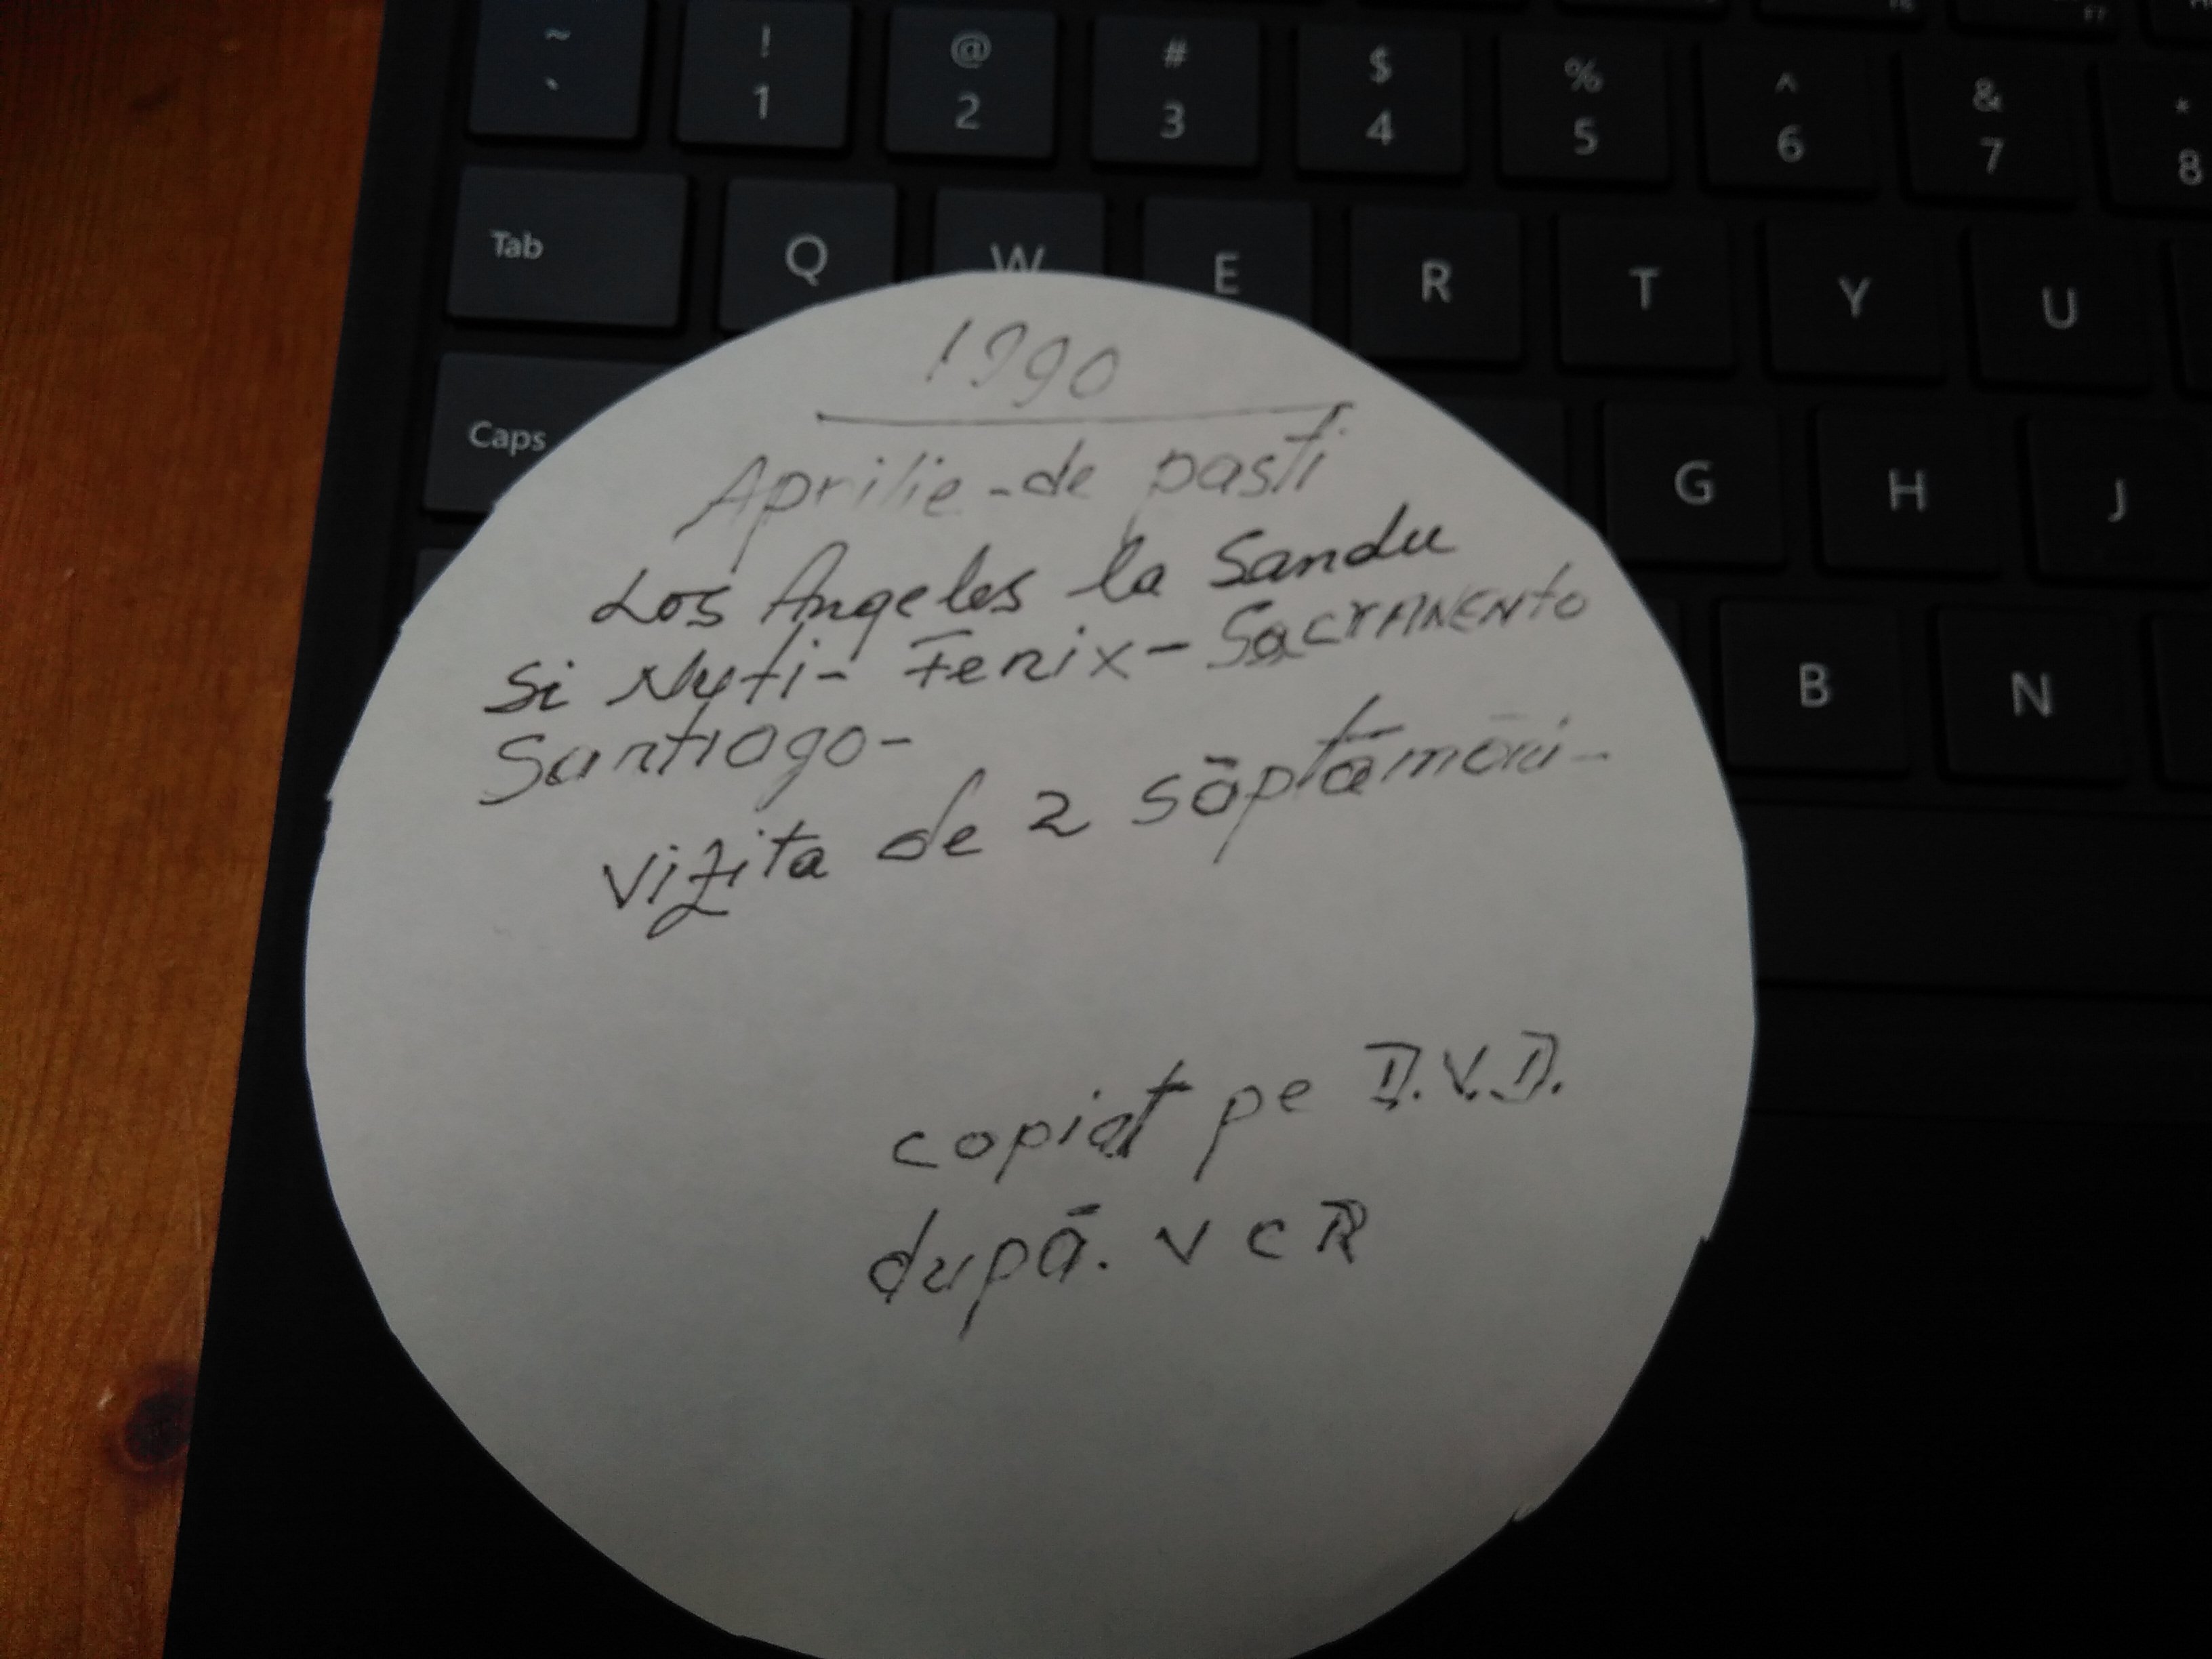 ~ ! @ # $ % ^ & *
` 1 2 3 4 5 6 7 8
Tab Q W E R T Y U
Caps G H J
B N
1990
Aprilie-de pasti
Los Angeles la Sandu
Si Nuti- Fenix-SACRAMENTO
Santiago-
Vizita de 2 săptămâni-
copiat pe D.V.D.
după. VCR